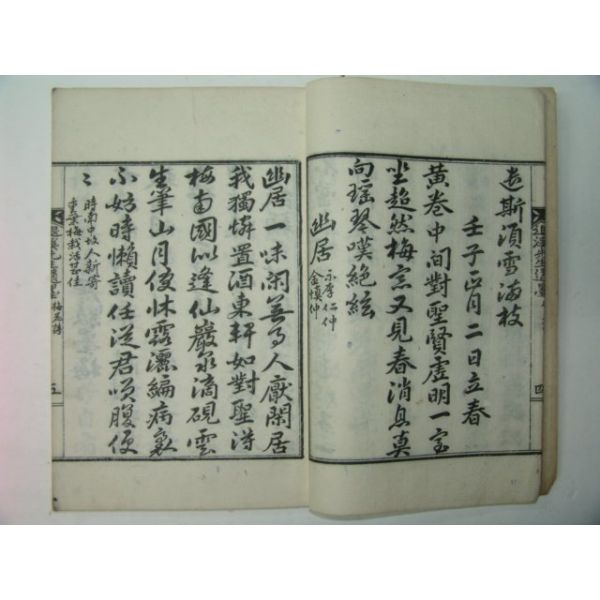 斯須雪滿枝
壬子正月二日立春
黃卷中間對聖賢虛明一室
坐超然梅窓又見春消息莫
向瑤琴嘆絶絃
幽居 示李仁仲
金愼仲
四
幽居一味閑無事人厭閑居
我獨憐置酒東軒如對聖得
梅南國似逢仙巖泉滴硯雲
生筆山月侵牀露灑編病裏
不妨時懶讀任從君笑腹便
〻 時南中故人新寄
重葉梅栽活甚佳
五